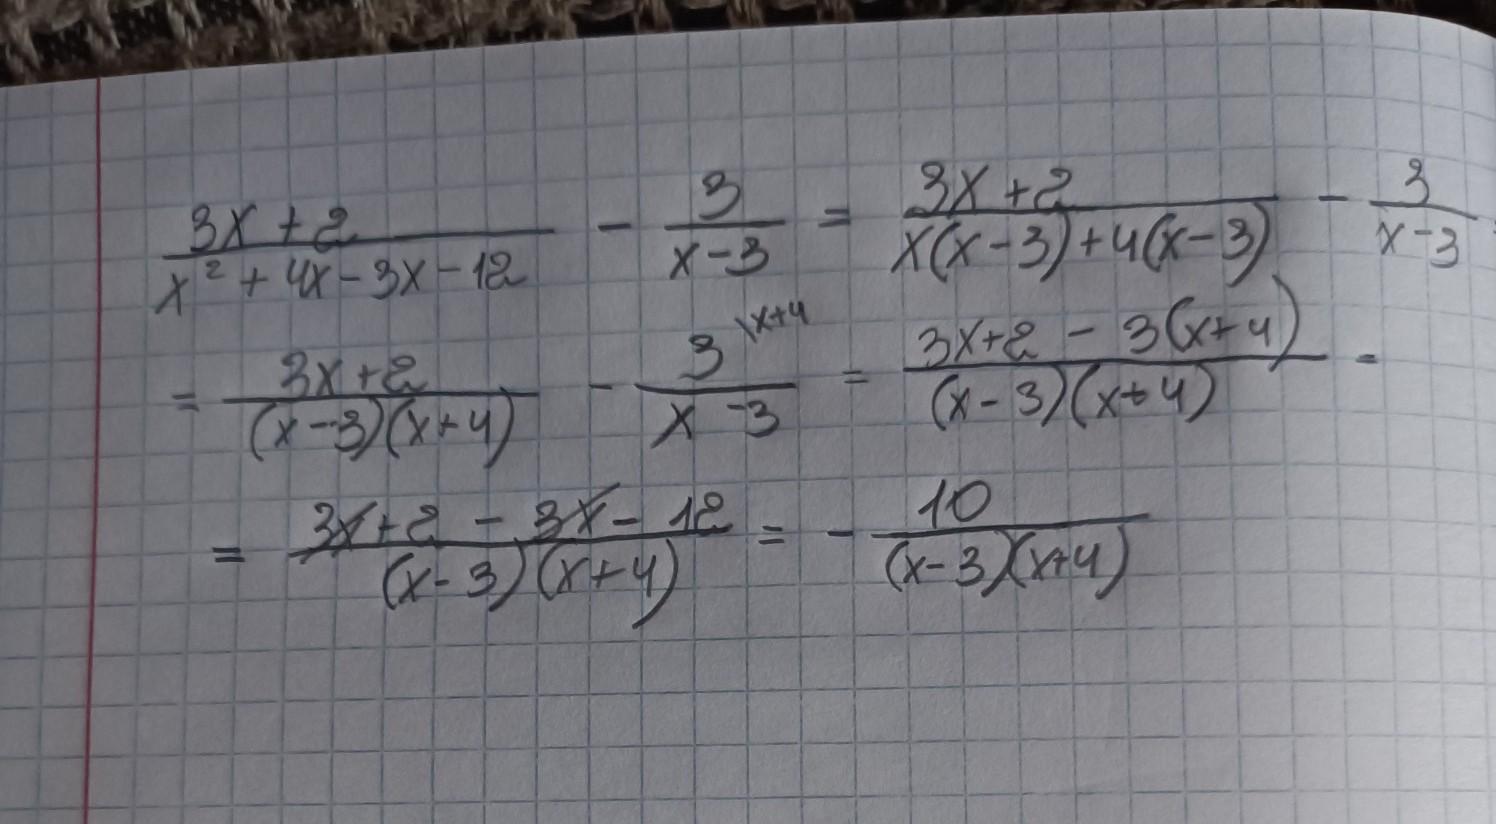 (3x+2)/(x²+4x-3x-12) - 3/(x-3) = (3x+2)/(x(x-3)+4(x-3)) - 3/(x-3)
= (3x+2)/((x-3)(x+4)) - 3\x+4/(x-3) = (3x+2-3(x+4))/((x-3)(x+4)) =
= (3x+2-3x-12)/((x-3)(x+4)) = -10/((x-3)(x+4))